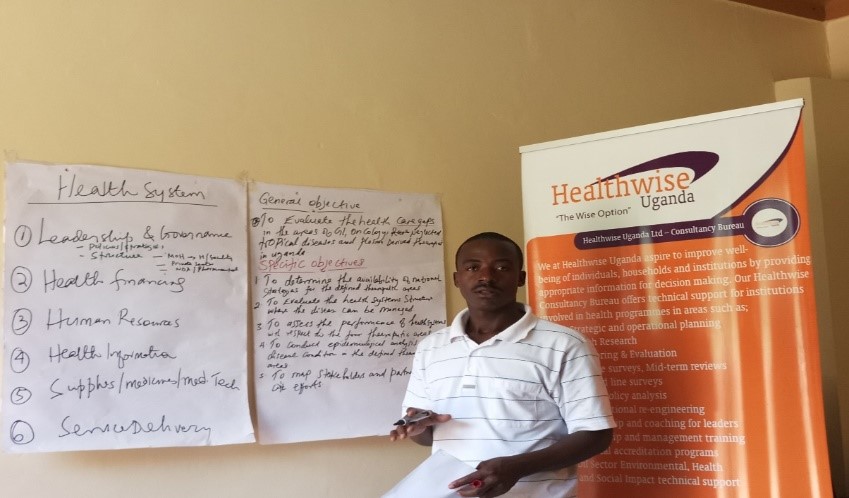 Health System
1 Leadership & Governance
- Policies/strategies
- Structure
2 Health financing
3 Human Resources
4 Health Information
5 Supplies/medicines/med. Tech
6 Service Delivery
General objective
To Evaluate the health care gaps
in the areas of GI, Oncology, Rare, Neglected
tropical diseases and plasma Derived
in uganda
Specific objectives
1 To determine the availability of national
strategies for the defined therapeutic areas
2. To Evaluate the health systems
where the disease can be managed
3 To assess the performance of health systems
with respect to the four therapeutic areas
4 To conduct epidemiological
disease condition in the defined
areas
5 To map stakeholders and
efforts
Healthwise
Uganda
"The Wise Option"
Healthwise Uganda Ltd – Consultancy Bureau
We at Healthwise Uganda aspire to improve well-
being of individuals, households and institutions by providing
appropriate information for decision making. Our Healthwise
Consultancy Bureau offers technical support for institutions
involved in health programmes in areas such as;
Strategic and operational planning
Research
& Evaluation
surveys, Mid-term reviews
line surveys
analysis
re-engineering
and coaching for leaders
and management training
accreditation programs
Sector Environmental, Health
and Social Impact technical support